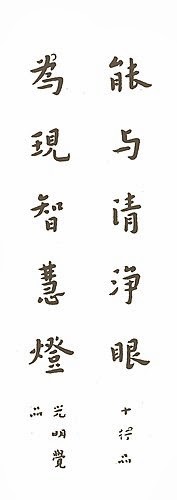 能与清淨眼
十行品
為現智慧燈
光明覺品